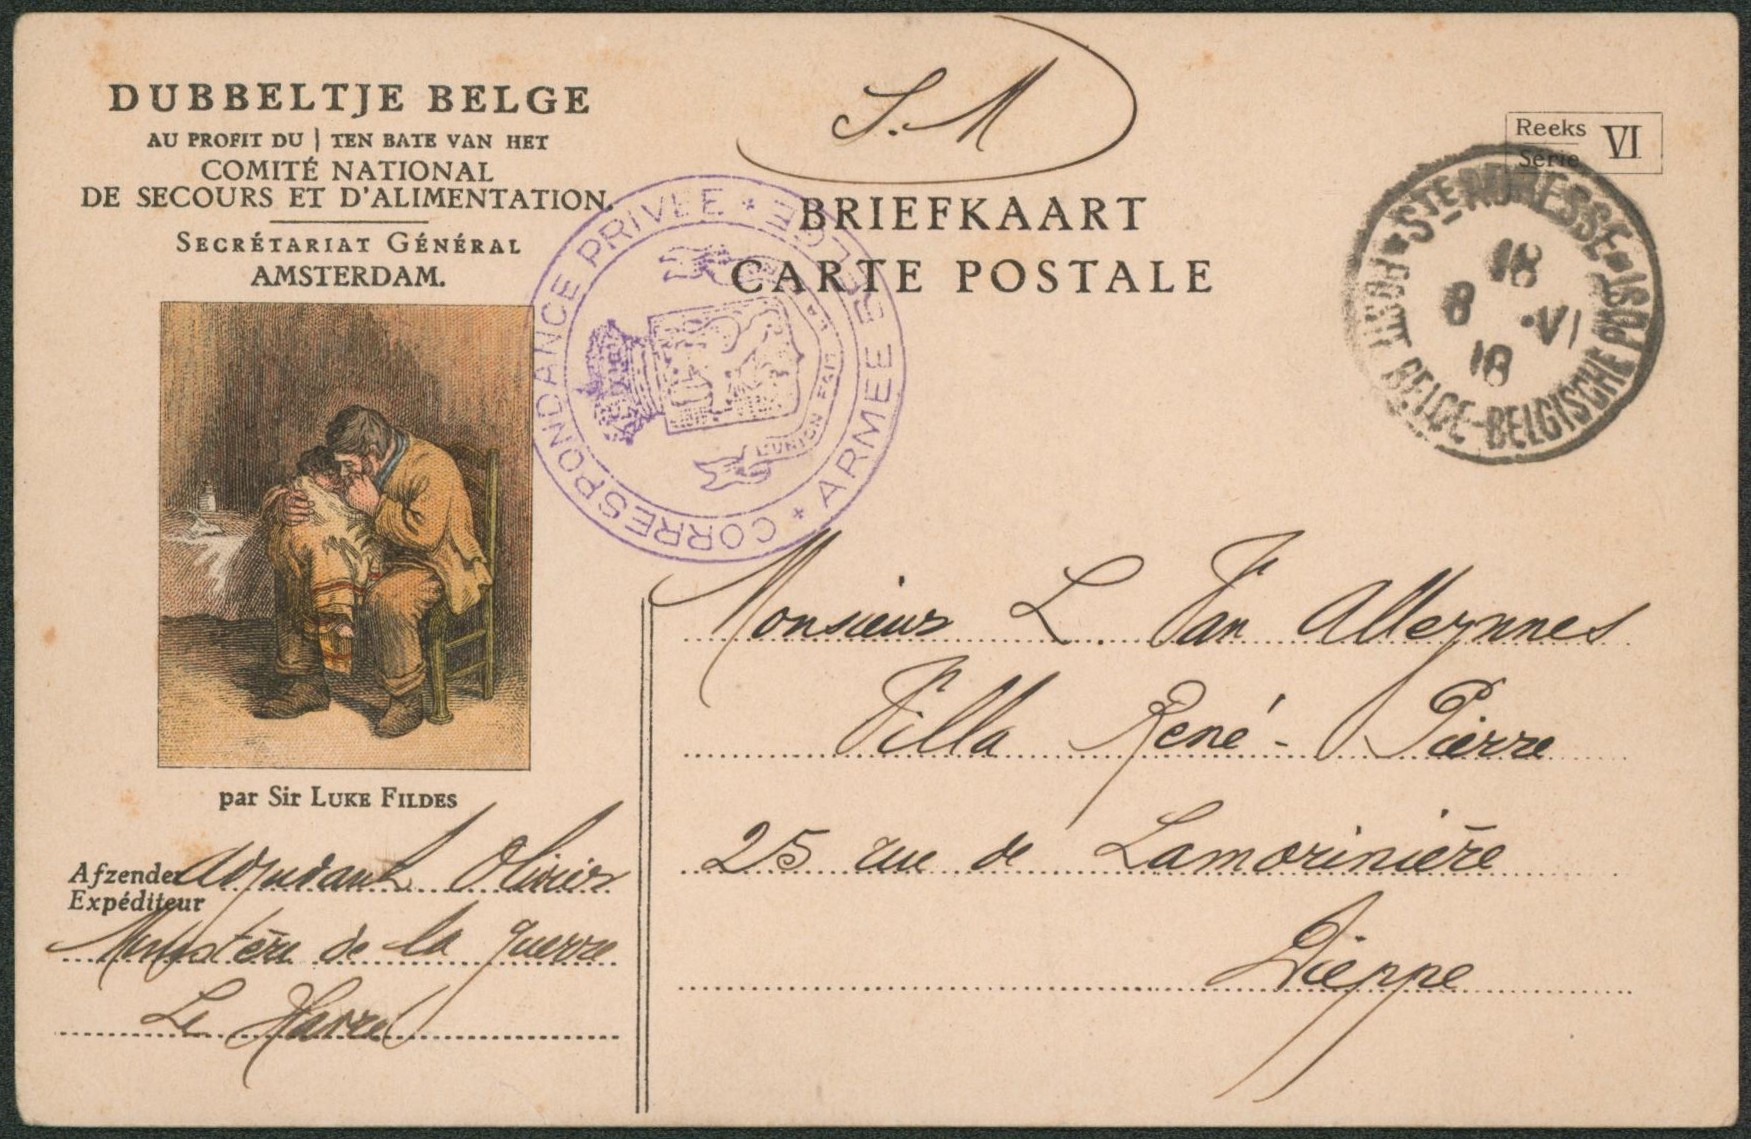 DUBBELTJE BELGE
AU PROFIT DU | TEN BATE VAN HET
COMITÉ NATIONAL
DE SECOURS ET D'ALIMENTATION.
SECRÉTARIAT GÉNÉRAL
AMSTERDAM.
par Sir LUKE FILDES
Afzender Adjudant Olivier
Expéditeur
Ministère de la guerre
Le Havre
S.M
BRIEFKAART
CARTE POSTALE
CORRESPONDANCE PRIVÉE * ARMÉE BELGE *
L'UNION FAIT LA
Reeks VI
Série
STE ADRESSE
POSTE BELGE-BELGISCHE POST
18
8 VI
18
Monsieur L. Van
Villa René-Pierre
25 rue de Lamorinière
Dieppe